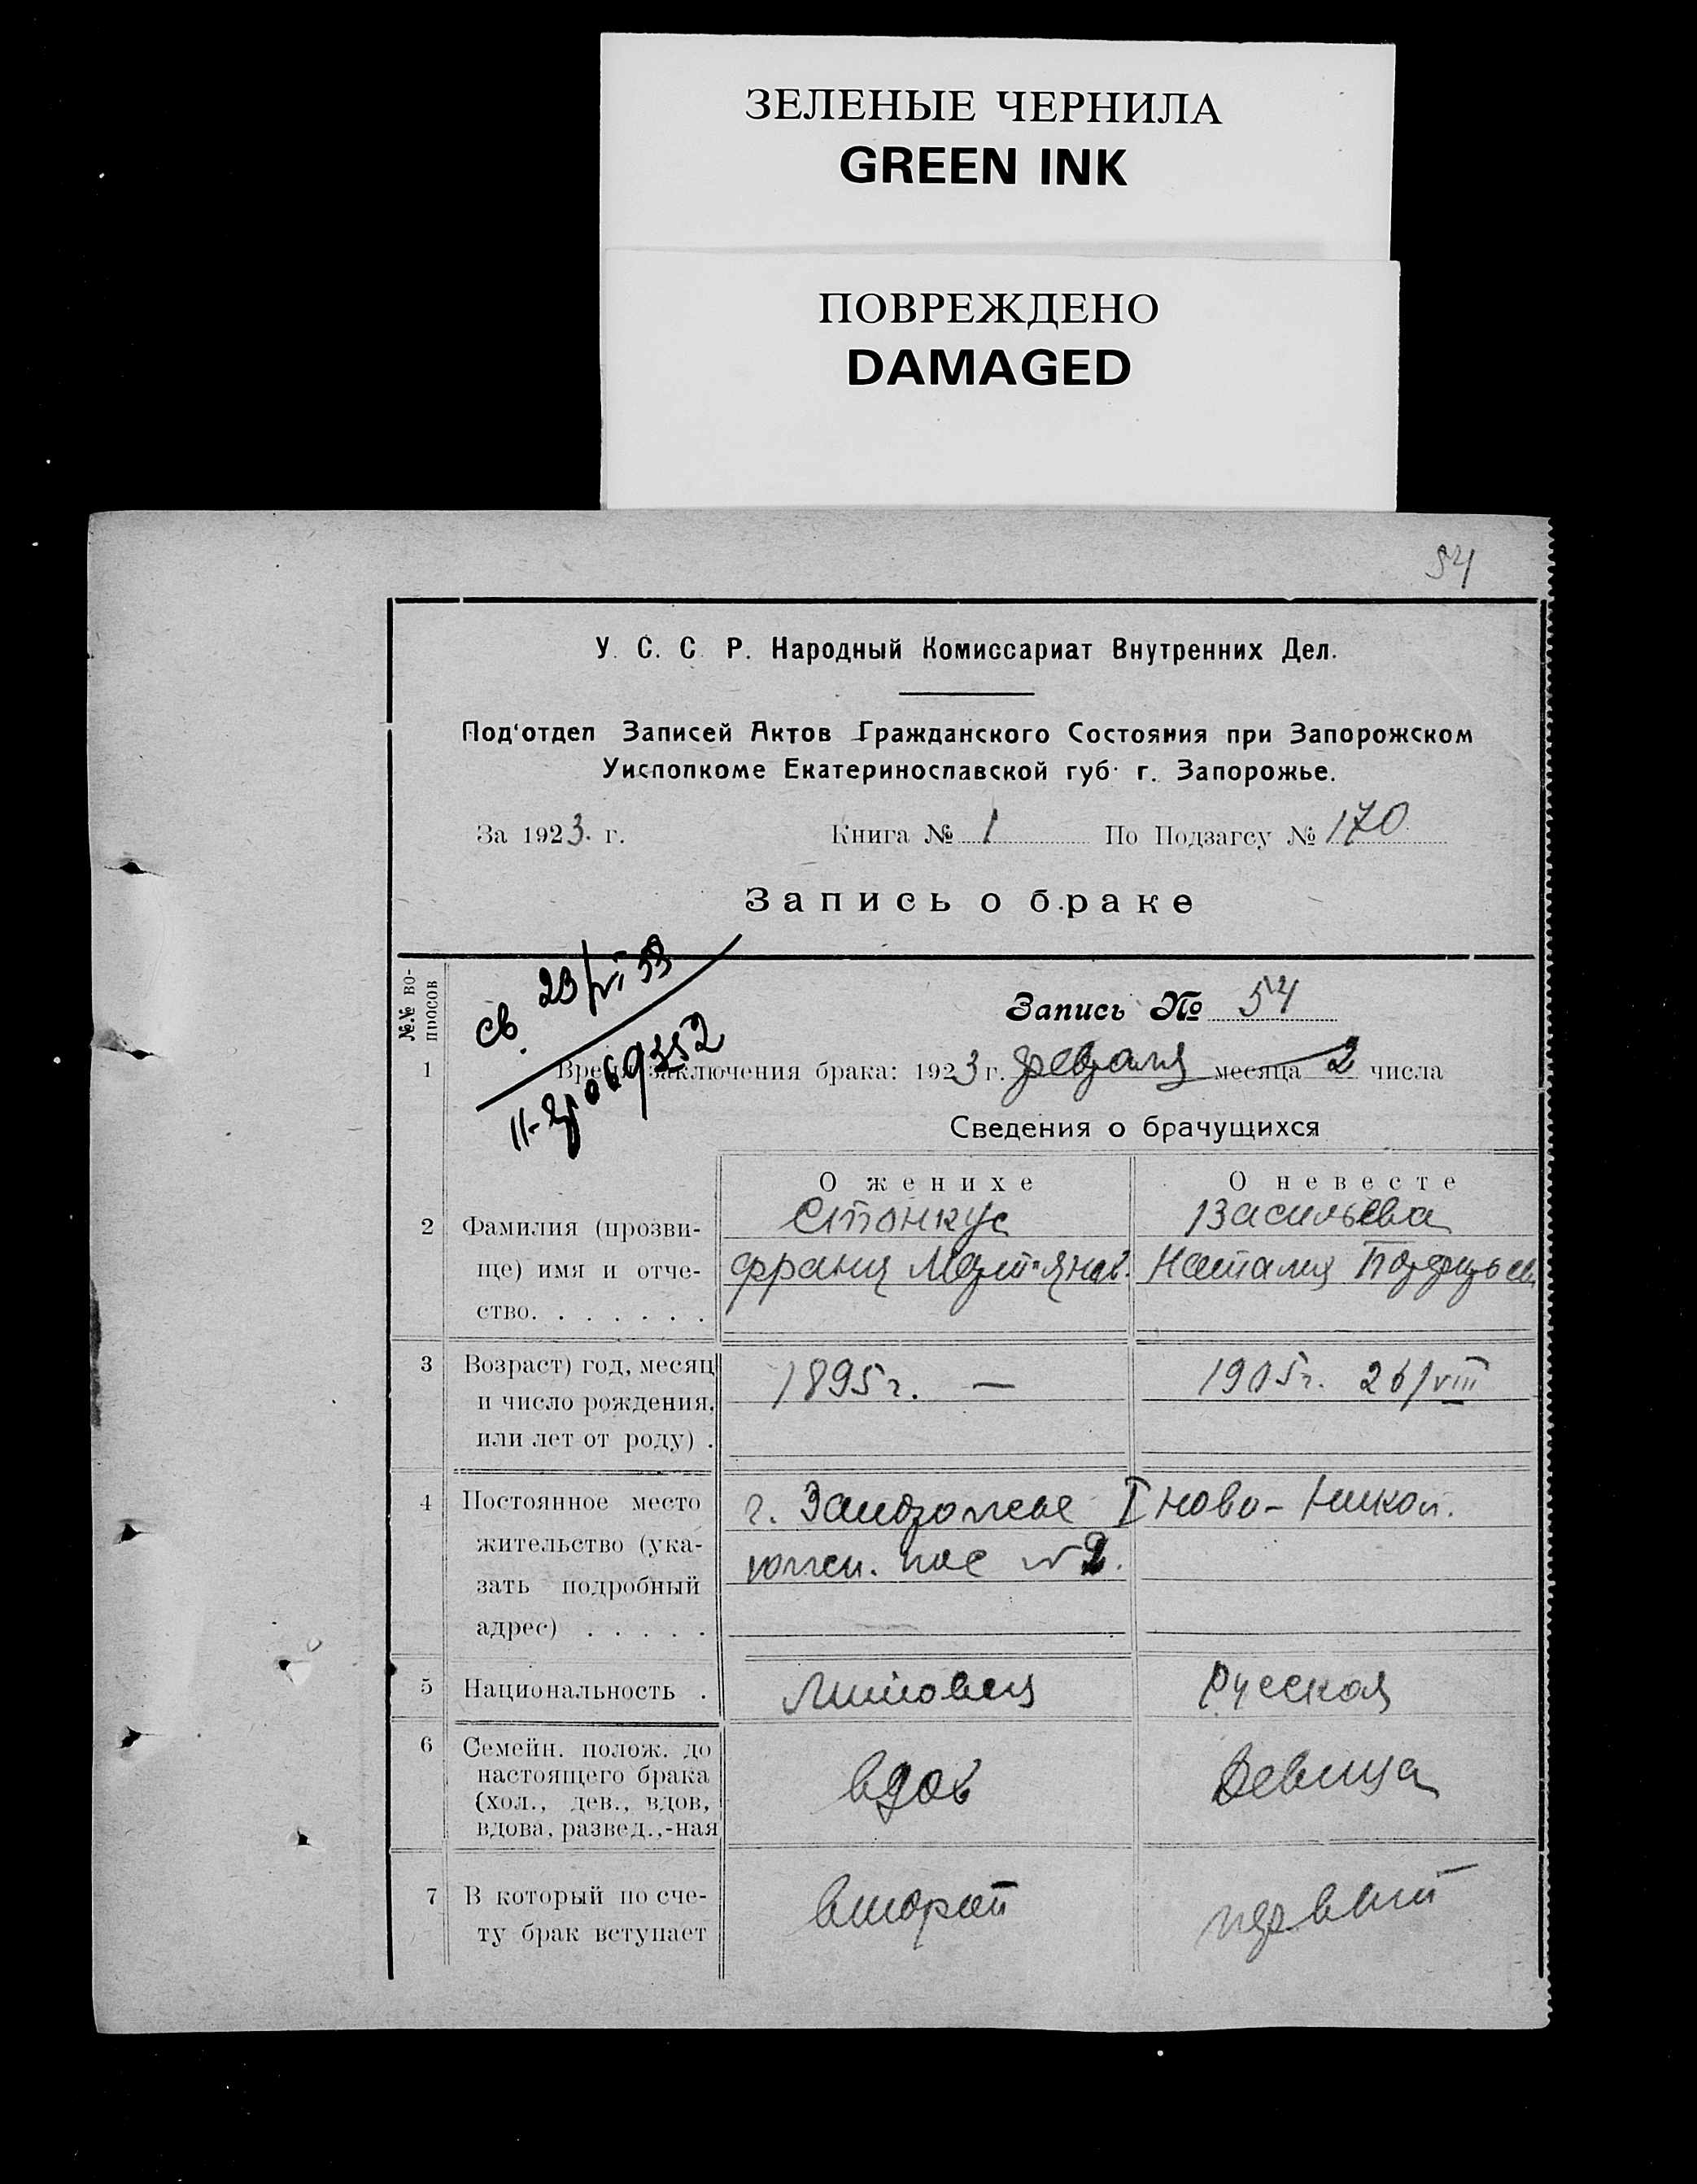 ЗЕЛЕНЫЕ ЧЕРНИЛА
GREEN INK
ПОВРЕЖДЕНО
DAMAGED
54
У. С. С. Р. Народный Комиссариат Внутренних Дел.
Под‘отдел Записей Актов Гражданского Состояния при Запорожском
Уисполкоме Екатеринославской губ. г. Запорожье.
За 1923. г. Книга № 1 По Подзагсу № 170
Запись о браке
№.№ во-
просов
св. 23/VI 53
Запись № 54
1 Время заключения брака: 1923 г. февраля месяца 2 числа
Сведения о брачущихся
О женихе О невесте
2 Фамилия (прозви- Стонкус Васильева
ще) имя и отче- Франц Наталия
ство. . . . . . .
3 Возраст) год, месяц 1895 г. — 1905 г. 26/VIII
и число рождения,
или лет от роду) .
4 Постоянное место г. Запорожье I Ново-Никол.
жительство (ука- южн. пос № 2.
зать подробный
адрес) . . . . .
5 Национальность . Литовец Русская
6 Семейн. полож. до
настоящего брака вдов Девица
(хол., дев., вдов,
вдова, развед.,-ная
7 В который по сче- второй первый
ту брак вступает